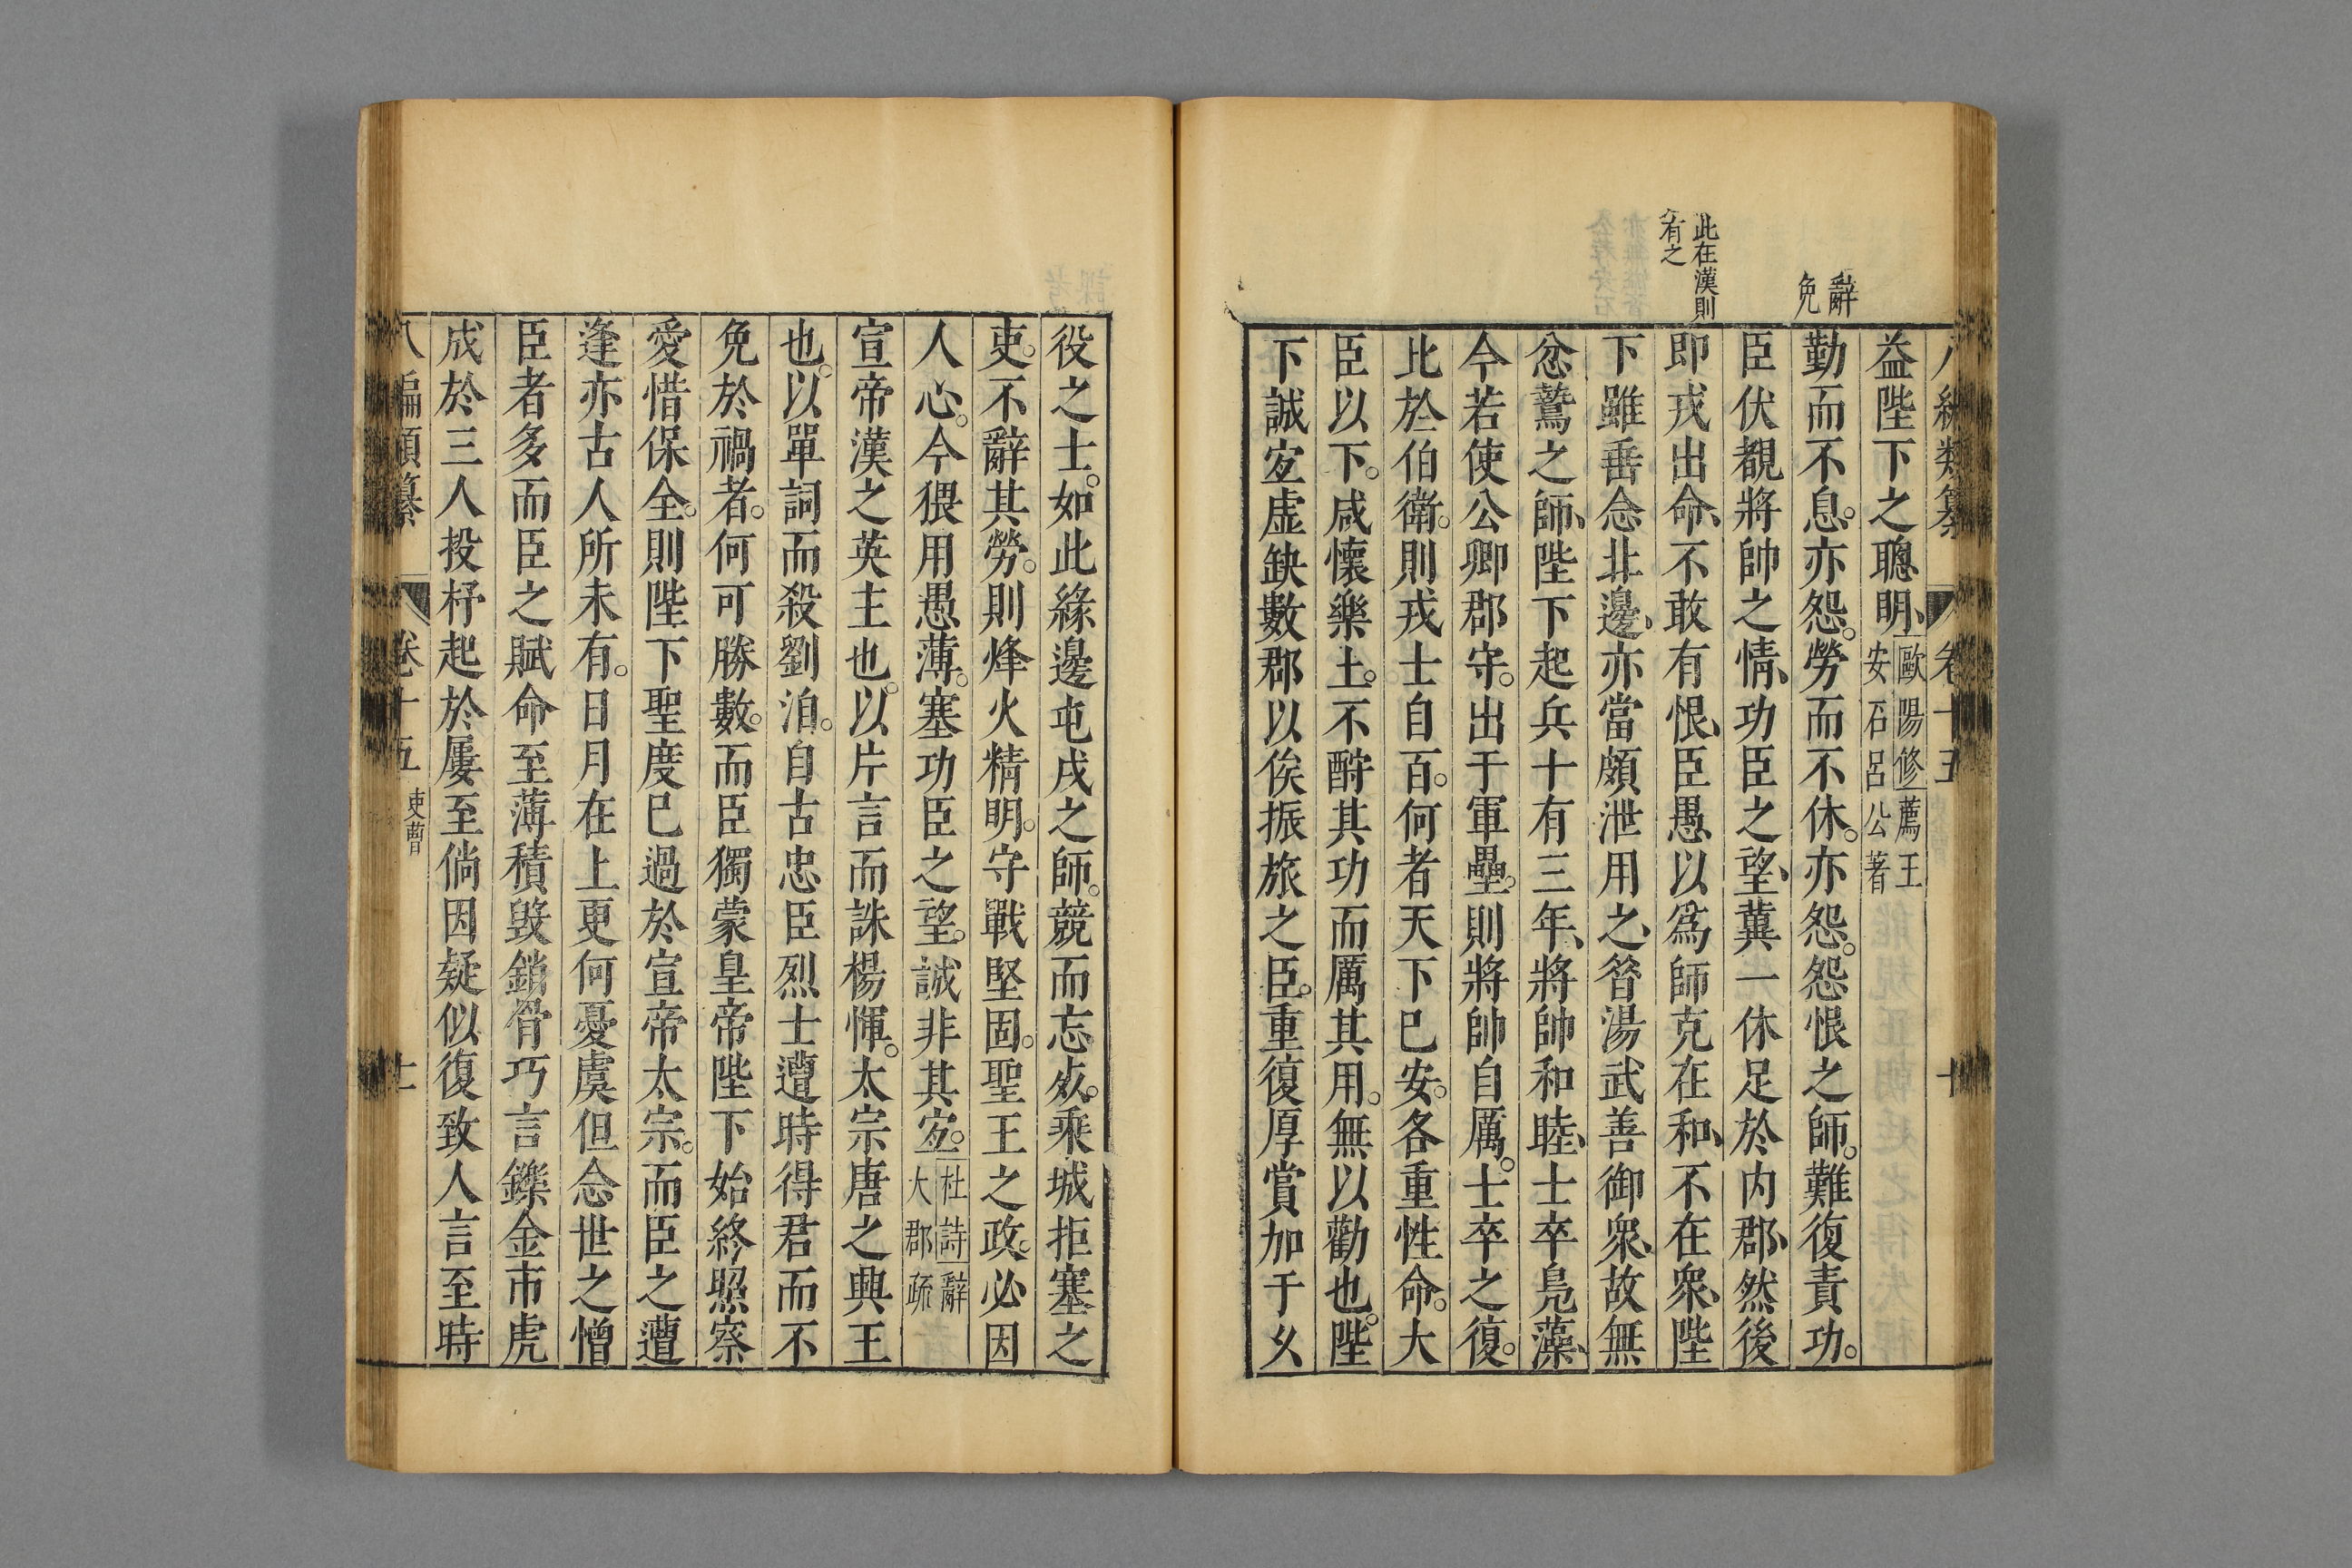 八編類纂 卷十五 十
辭
免
此在漢則
今有之
益陛下之聰明歐陽修薦王
安石呂公著
勤而不息亦怨勞而不休亦怨怨恨之師難復責功
臣伏覩將帥之情功臣之望冀一休足於内郡然後
即戎出命不敢有恨臣愚以爲師克在和不在衆陛
下雖垂念北邊亦當頗泄用之昝湯武善御衆故無
忿鷙之師陛下起兵十有三年將帥和睦士卒鳧藻
今若使公卿郡守出于軍壘則將帥自厲士卒之復
比於伯衛則戎士自百何者天下已安各重性命大
臣以下咸懷樂土不酧其功而厲其用無以勸也陛
下誠宐虛缺數郡以俟振旅之臣重復厚賞加于久
役之士如此緣邊屯戍之師競而忘㱔乘城拒塞之
吏不辭其勞則烽火精明守戰堅固聖王之政必因
人心今猥用愚薄塞功臣之望誠非其宐杜詩辭
大郡疏
宣帝漢之英主也以片言而誅楊惲太宗唐之興王
也以單詞而殺劉洎自古忠臣烈士遭時得君而不
免於禍者何可勝數而臣獨蒙皇帝陛下始終照察
愛惜保全則陛下聖度已過於宣帝太宗而臣之遭
逢亦古人所未有日月在上更何憂虞但念世之憎
臣者多而臣之賦命至薄積毀銷骨巧言鑠金市虎
成於三人投杼起於屢至倘因疑似復致人言至時
八編類纂 卷十五 吏曹 十一